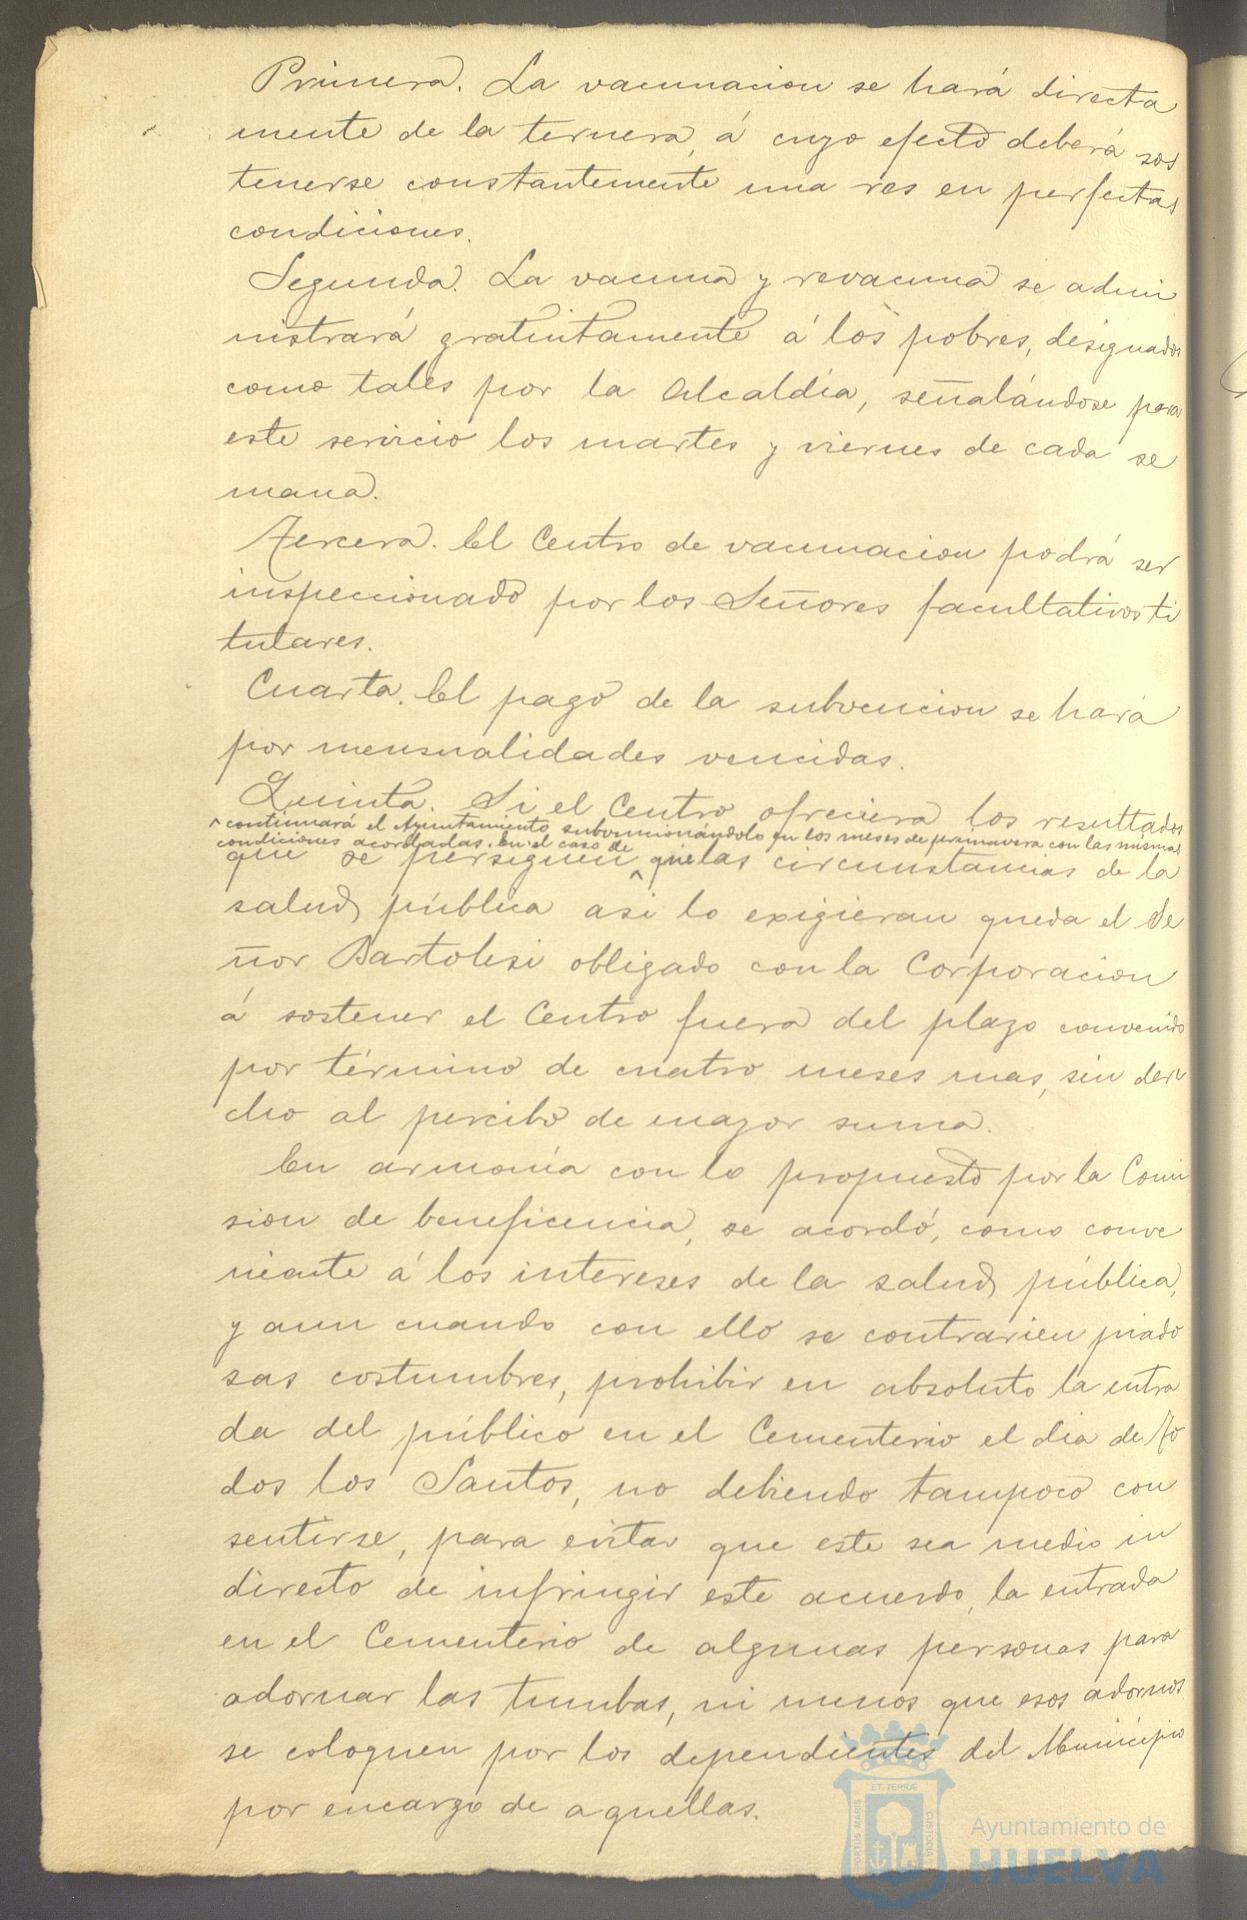 Primera. La vacunacion se hará directa
mente de la ternera, á cuyo efecto deberá sos
tenerse constantemente una res en perfectas
condiciones.
Segunda. La vacuna y revacuna se admi
nistrará gratuitamente á los pobres, designados
como tales por la Alcaldía, señalándose para
este servicio los martes y viernes de cada se
mana.
Tercera. El Centro de vacunacion podrá ser
inspeccionado por los Señores facultativos ti
tulares.
Cuarta. El pago de la subvencion se hará
por mensualidades vencidas.
Quinta. Si el Centro ofreciera los resultados
^ continuará el Ayuntamiento subvencionándolo en los meses de primavera con las mismas
condiciones acordadas. En el caso de
que se persiguen ^ que las circunstancias de la
salud pública asi lo exigieran queda el Se
ñor Bartolesi obligado con la Corporacion
á sostener el Centro fuera del plazo convenido
por término de cuatro meses mas, sin dere
cho al percibo de mayor suma.
En armonía con lo propuesto por la Comi
sion de beneficencia, se acordó, como conve
niente á los intereses de la salud pública,
y aun cuando con ello se contrarien piado
sas costumbres, prohibir en absoluto la entra
da del público en el Cementerio el dia de To
dos los Santos, no debiendo tampoco con
sentirse, para evitar que este sea medio in
directo de infringir este acuerdo, la entrada
en el Cementerio de algunas personas para
adornar las tumbas, ni menos que esos adornos
se coloquen por los dependientes del Municipio
por encargo de aquellas.
ET TERRÆ
PORTUS MARIS
CUSTODIA
Ayuntamiento de
HUELVA